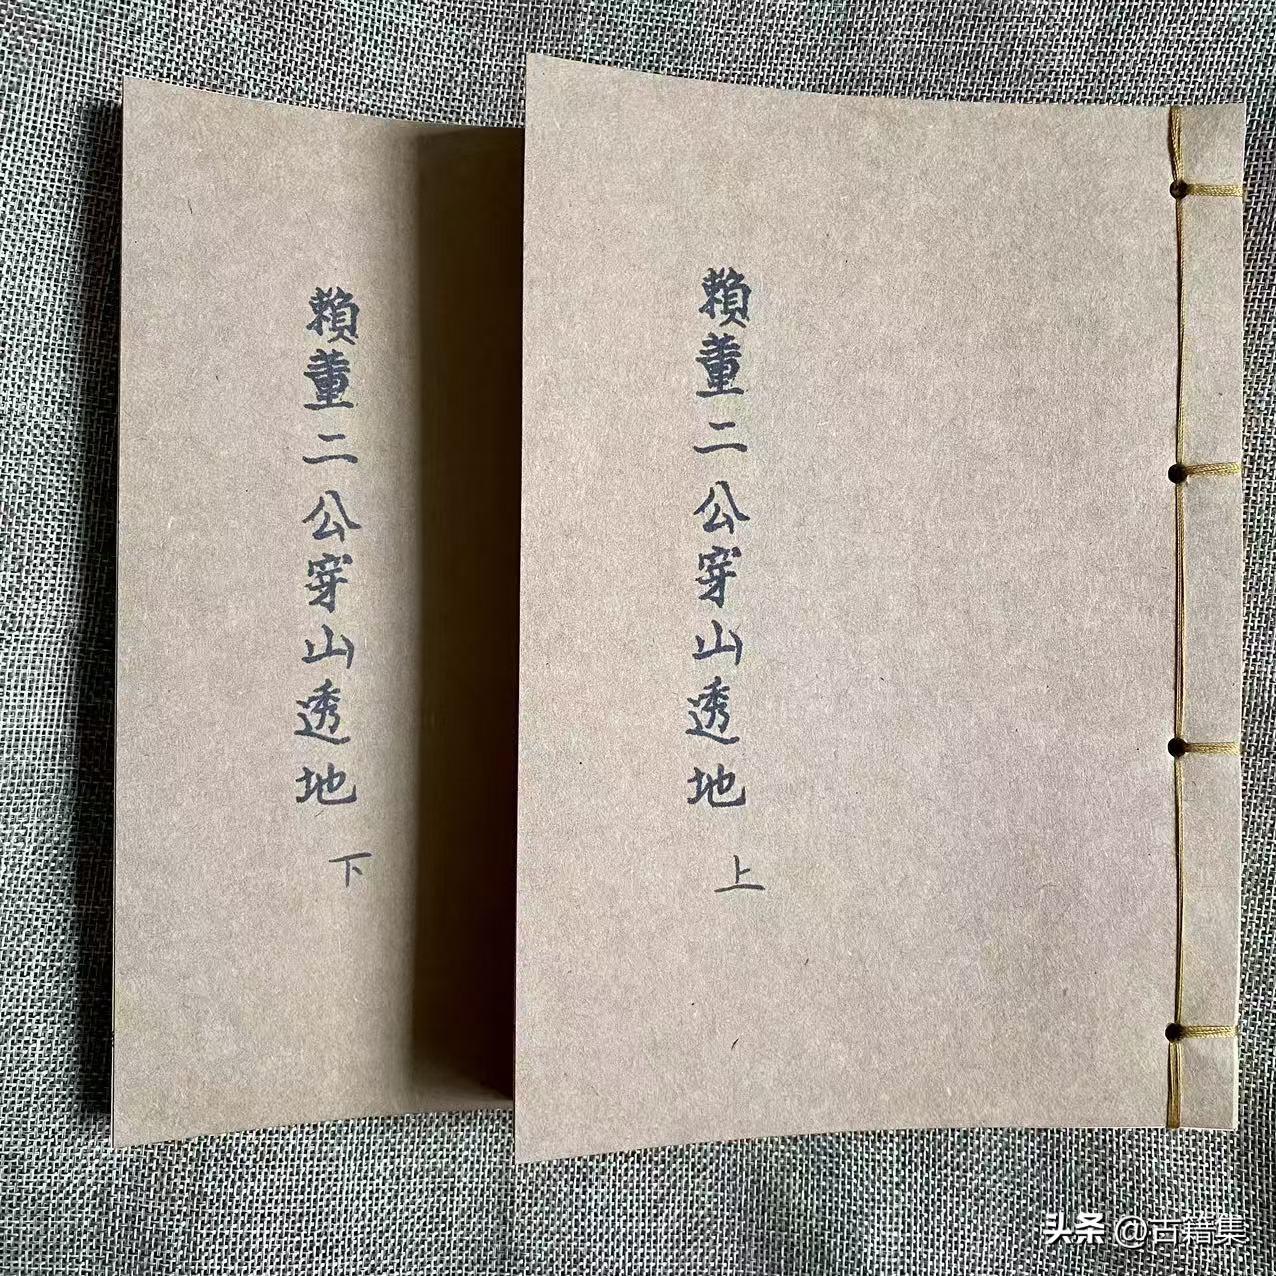 賴董二公穿山透地
上
賴董二公穿山透地
下
头条 @古籍集